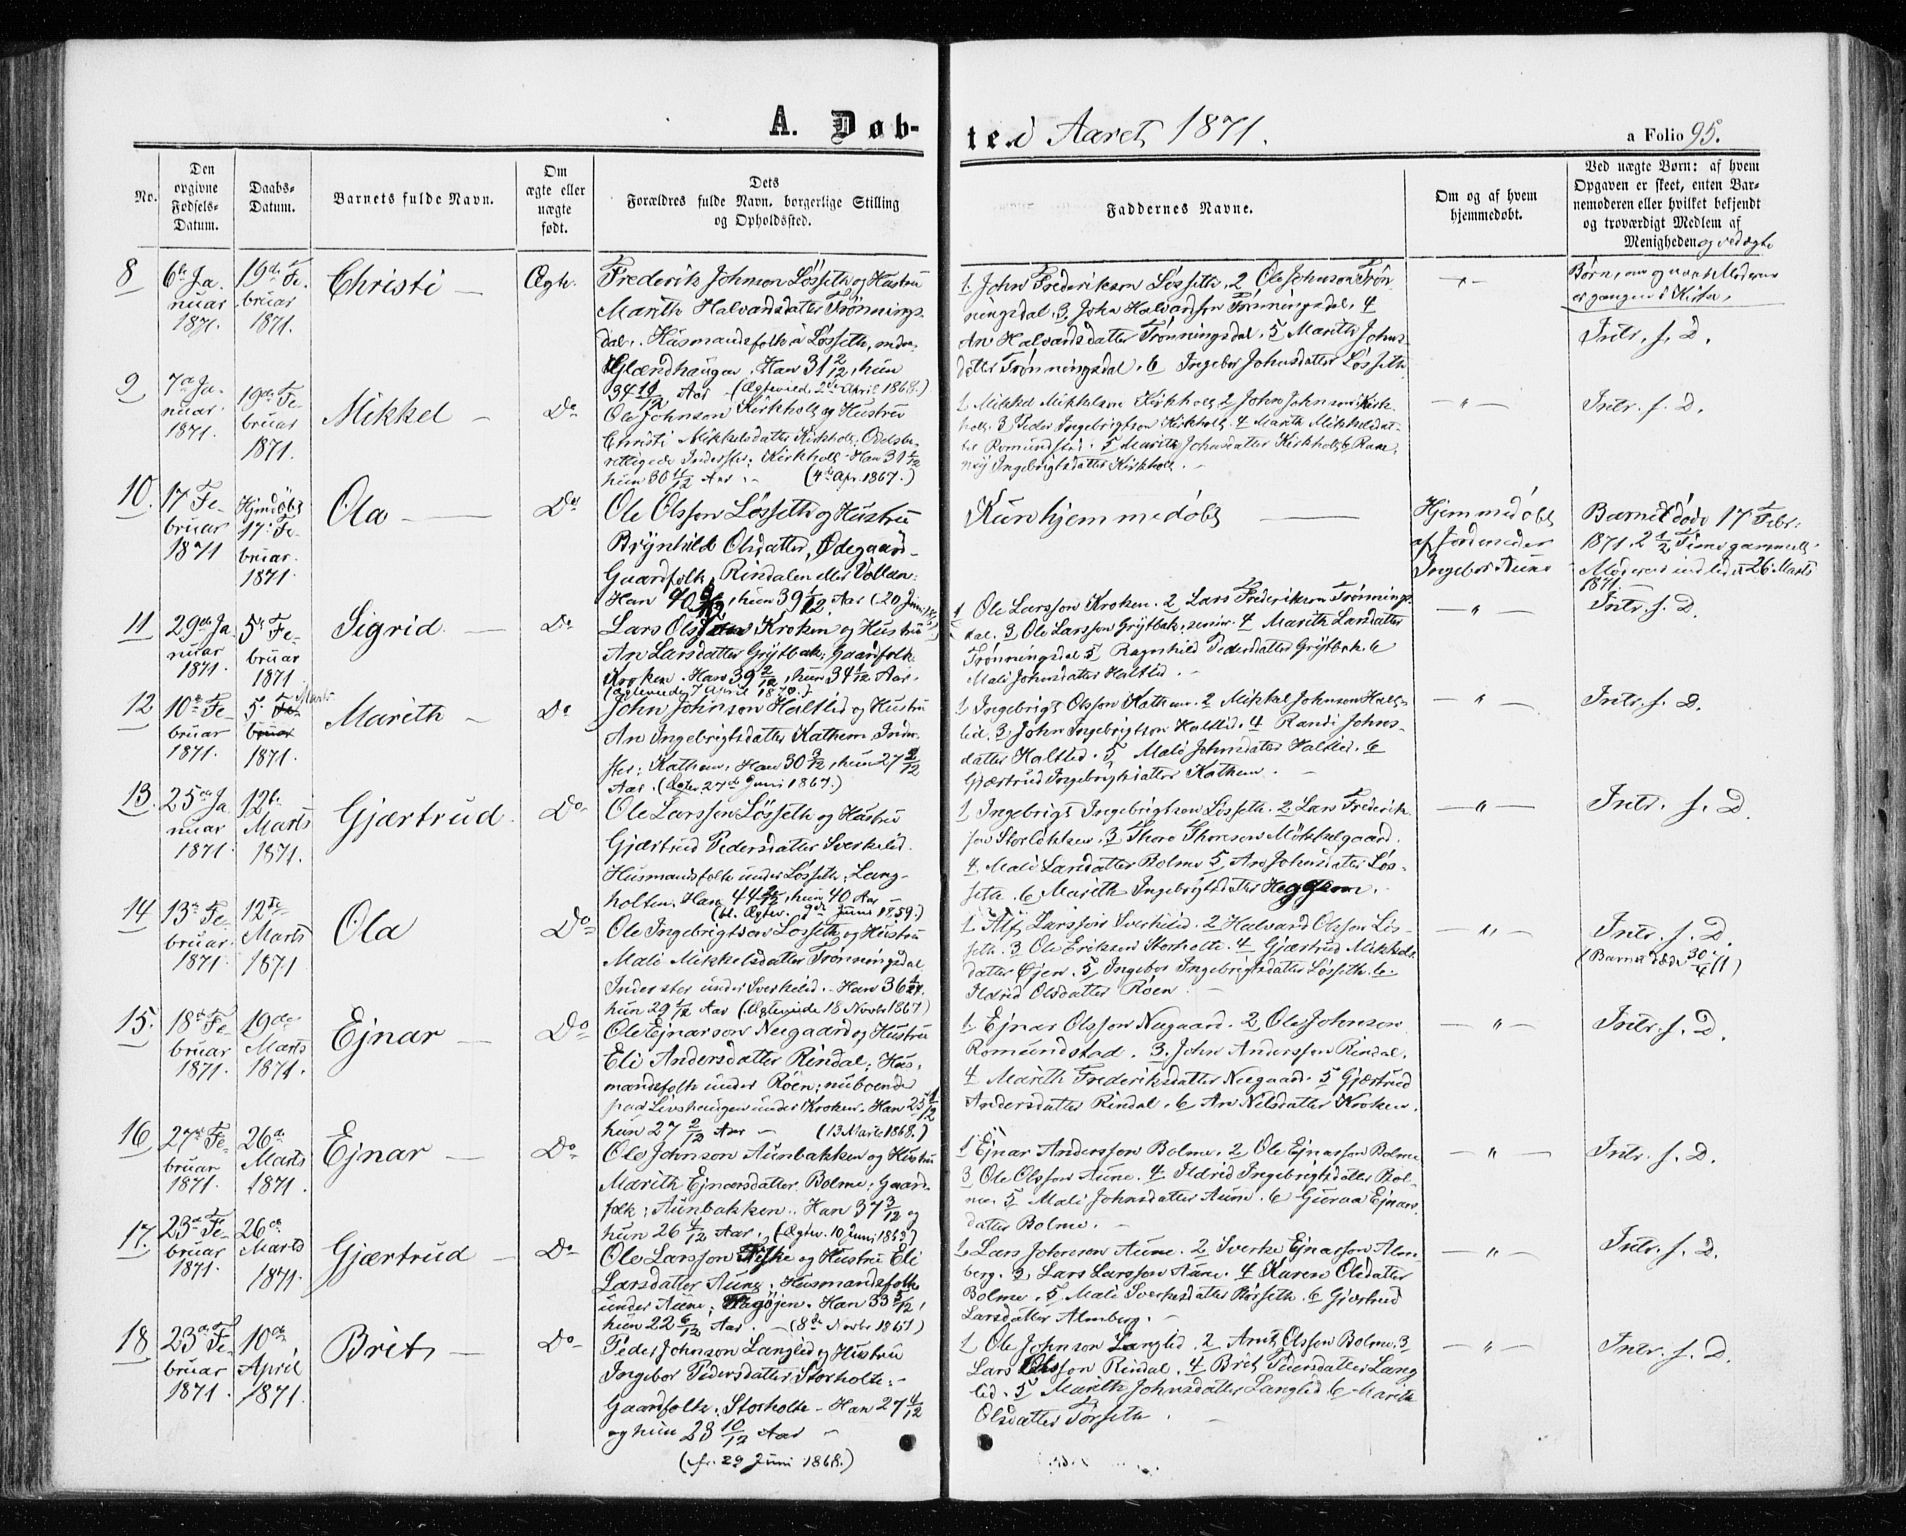 A. Døb-
te i Aaret 1871.
a Folio 95.
No.
Den opgivne Fødsels-Datum.
Daabs-Datum.
Barnets fulde Navn.
Om ægte eller uægte født.
Dets
Forældres fulde Navn, borgerlige Stilling
og Opholdssted.
Faddernes Navne.
Om og af hvem
hjemmedøbt.
Ved uægte Børn: af hvem
Opgaven er skeet, enten Bar-
nemoderen eller hvilket bekjendt
og troværdigt Medlem af
Menigheden og ved ægte
Børn, om og naar Moderen
er gangen i Kirke.
8
6te Ja-
nuar
1871.
19de Fe-
bruar
1871.
Christi —
Ægte.
Frederik Johnson Løsseth og Hustru
Marith Halvardsdatter Trønnings-
dal. Husmandsfolk Løsseth,
Han 31 2/12, hun
34 10/12 Aar — (Ægteviede 2de April 1868.)
1. John Frederikson Løsseth. 2 Ole Johnson Trøn-
ningsdal. 3. John Halvardson Trønningsdal. 4
An Halvardsdatter Trønningsdal. 5 Marith Johns-
datter Trønningsdal. 6 Ingebor Johnsdatter Løsseth.
— " —
Intr. f. D.
9
7de Ja-
nuar.
1871.
19de Fe-
bruar
1871.
Mikkel —
Do
Ole Johnson Kirkholt og Hustru
Christi Mikkelsdatter Kirkholt. Odelsbe-
rettigede Inderster: Kirkholt. Han 31
hun 30 11/12 Aar. — (4de Apr. 1867.)
1. Mikkel Mikkelson Kirkholt 2 John Johnson Kirk-
holt. 3 Peder Ingebrigtson Kirkholt. 4 Marith Mikkelsdat-
ter Romundstad. 5 Marith Johnsdatter Kirkholt. 6 Ran-
nøy Ingebrigtsdatter Kirkholt. —
— " —
Intr. f. D.
10.
17 Fe-
bruar
1871
Hjemdøbt
17. Fe-
bruar.
1871.
Ola —
Do
Ole Olsson Løsseth og Hustru
Brynhild Olsdatter, Ødegaard-
Gaardfolk, Rindalen eller Vollen:
Han 40, hun 39 Aar (20 Juni
Kun hjemmedøbt —
Hjemmedøbt
af Jordmoder
Ingebor Aune
Barnet døde 17 Febr:
1871. 2 1/2 Time gammelt.
Moderen indledet 26 Marts
1871.
11
29de Ja-
nuar
1871.
5te Fe-
bruar
1871
Sigrid. —
Do
Lars Olsson Kroken og Hustru
An Larsdatter Grytbak; Gaardfolk.
Kroken. Han 39 2/12, hun 34 1/2 Aar.
(Ægteviede 7 April 1870.)
1. Ole Larsson Kroken. 2 Lars Frederikson Trønnings-
dal. 3 Ole Larsson Grytbak, senior. 4 Marith Larsdatter
Trønningsdal 5. Ragnhild Pedersdatter Grytbak. 6
Mali Johnsdatter Haltlid.
— " —
Intr. f. D.
12
10de Fe-
bruar
1871.
5te Marts
1871.
Marith —
Do
John Johnson Haltlid og Hustru
An Ingebrigtsdatter Kathem. Inder-
ster: Kathem. Han 30 3/12, hun 27 2/12
Aar. (Ægtev. 27de Juni 1867.)
1. Ingebrigt Olsson Kathem. 2 Mikkel Johnson Halt-
lid. 3 John Ingebrigtson Haltlid. 4 Randi Johns-
datter Haltlid. 5 Mali Johnsdatter Haltlid. 6
Gjærtrud Ingebrigtsdatter Kathem. —
— " —
Intr. f. D.
13.
25de Ja-
nuar
1871.
12te
Marts
1871.
Gjærtrud.
Do
Ole Larsson Løsseth og Hustru
Gjærtrud Pedersdatter Sverkelid.
Husmandsfolk under Løsseth, Lang-
holten. Han 44, hun 40 Aar —
(bl. Ægtev. 9de Juni 1859.)
1 Ingebrigt Ingebrigtson Løsseth. 2 Lars Frederik-
son Storløkken. 3 Thore Thoreson Møkkelgaard.
4 Mali Larsdatter Bolme 5 An Johnsdatter Løs-
seth. 6 Marith Ingebrigtsdatter Heggem. —
— " —
Intr. f. D.
14
13de Fe-
bruar.
1871.
12te
Marts
1871
Ola
Do
Ole Ingebrigtson Løsseth og Hustru
Mali Mikkelsdatter Trønningsdal
Inderster under Sverkelid. — Han 36
hun 29 1/2 Aar (Ægteviede 18 Novbr 1867)
1 Alf Larsson Sverkelid. 2 Halvard Olsson Løs-
seth. 3 Ole Erikson Storholte. 4 Gjærtrud Mikkels-
datter Øjen. 5 Ingebor Ingebrigtsdatter Løsseth. 6.
Ildrid Olsdatter Røen —
— " —
Intr. f. D.
(Barnet døde 30/4 71)
15.
18de Fe-
bruar
1871.
19de
Marts
1871.
Ejnar —
Do
Ole Ejnarson Neegaard og Hustru
Eli Andersdatter Rindal; Hus-
mandsfolk under Røen; nuboende
paa Livshaugen under Kroken. Han 25 1/12
hun 27 2/12 Aar — (13 Marts 1868.)
1. Ejnar Olsson Neegaard. 2 Ole Johnson
Romundstad. 3. John Andersson Rindal.
4 Marith Frederiksdatter Neegaard. 5 Gjærtrud
Andersdatter Rindal. 6 An Nilsdatter Kroken.
— " —
Intr. f. D.
16
27de Fe-
bruar
1871.
26de
Marts
1871.
Ejnar —
Do
Ole Johnson Aunbakken og Hustru
Marith Ejnarsdatter Bolme; Gaard-
folk: Aunbakken. Han 37 3/12 og
hun 26 4/12 Aar. (Ægtev. 10 Juni 1869)
1 Ejnar Andersson Bolme. 2 Ole Ejnarson Bolme
3 Ole Olsson Aune. 4 Ildrid Ingebrigtsdatter Bol-
me. 5 Mali Johnsdatter Aune. 6 Guraa Ejnars-
datter Bolme. —
— " —
Intr. f. D.
17.
23de Fe-
bruar
1871.
26de
Marts
1871.
Gjærtrud —
Do
Ole Larsson Fiske og Hustru Eli
Larsdatter Aune. Husmandsfolk
under Aune; Han 33 5/12,
hun 22 6/12 Aar. — (8de Novbr 1867)
1. Lars Johnson Aune. 2 Sverke Ejnarson Alm-
berg. 3 Lars Larsson Aune. 4 Karen Olsdatter
Bolme. 5 Mali Sverkesdatter Løsseth. 6 Gjærtrud
Larsdatter Almberg. —
— " —
Intr. f. D.
18
23de Fe-
bruar
1871.
10de
April
1871.
Brit —
Do
Peder Johnson Langlid og Hustru
Ingebor Pedersdatter Storholte. —
Gaardfolk: Storholte — Han 27 4/12
og hun 23 10/12 Aar —
(fr. 29 Juni 1868.)
1 Ole Johnson Langlid. 2 Arnt Olsson Bolme. 3
Lars Olsson Rindal. 4 Brit Pedersdatter Lang-
lid. 5 Marith Johnsdatter Langlid 6 Marith
Olsdatter Tørseth. —
— " —
Intr. f. D.